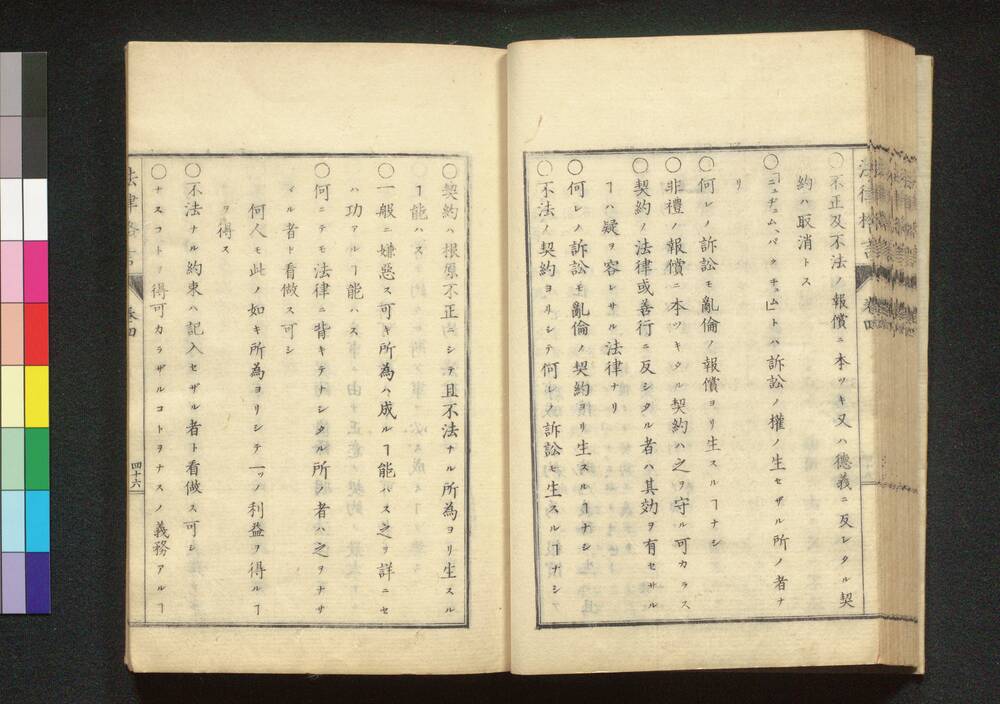 〇不正及不法ノ報償ニ本ツキ又ハ德義ニ反シタル契
約ハ取消トス
〇「ニュヂュム、パクチュム」トハ訴訟ノ權ノ生セザル所ノ者ナ
リ
〇何レノ訴訟モ亂倫ノ報償ヨリ生スルヿナシ
〇非禮ノ報償ニ本ツキタル契約ハ之ヲ守ル可カラス
〇契約ノ法律或善行ニ反シタル者ハ其効ヲ有セサル
ヿハ疑ヲ容レサル法律ナリ
〇何レノ訴訟モ亂倫ノ契約ヨリ生スルヿナシ
〇不法ノ契約ヨリシテ何レノ訴訟モ生スルヿナシ
〇契約ハ根原不正ニシテ且不法ナル所為ヨリ生スル
ヿ能ハス
〇一般ニ嫌惡ス可キ所為ハ成ルヿ能ハス之ヲ詳ニセ
ハ功アルヿ能ハス
〇何ニテモ法律ニ背キテナシタル所ノ者ハ之ヲナサ
ヾル者ト看做ス可シ
何人モ此ノ如キ所為ヨリシテ一ッノ利益ヲ得ルヿ
ヲ得ス
〇不法ナル約束ハ記入セザル者ト看做ス可シ
〇ナスコトヲ得可カラザルコトヲナスノ義務アルヿ
四十六